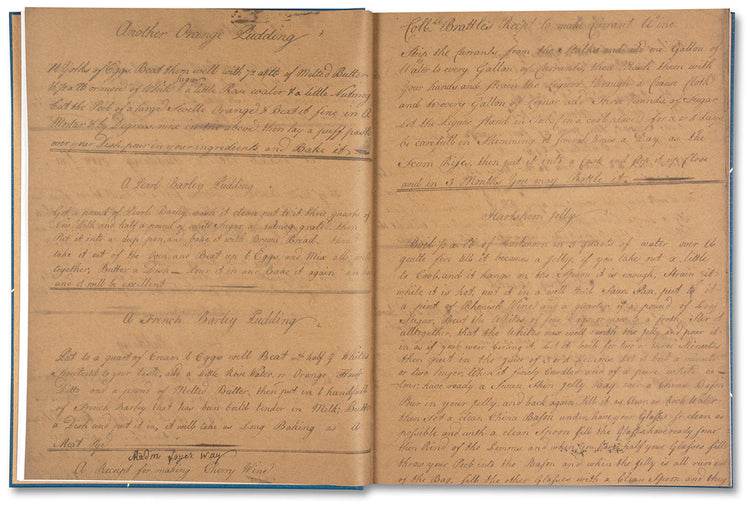 Another Orange Pudding
10 Yolks of Eggs Beat them well with 1/2 a lb of Melted Butter
White Sugar a little Rose water & a little Nutmeg
Cut the Peel of a large Seville Orange & Beat it fine in A
Mortar & by Degrees mix in the above then lay a puff paste
over your Dish, pour in your ingredients and Bake it
A Pearl Barley Pudding
Get a pound of Pearl Barley wash it clean put to it three quarts of
New Milk and half a pound of white Sugar a nutmeg grated then
Put it into a deep pan and bake it with Brown Bread, then
take it out of the Oven and Beat up 6 Eggs and Mix all well
together, Butter a Dish — Pour it in and Bake it again an hour
and it will be excellent
A French Barley Pudding
Put to a quart of Cream 6 Eggs well Beat half the Whites
Sweeten it to your taste, add a little Rose Water, or Orange Flower
Ditto and a pound of Melted Butter, then put in 6 handfulls
of French Barley that has been boild tender in Milk, Butter
a Dish and put it in, it will take as Long Baking as A
Meat Pye
Madm Joyes way
A Receipt for making Cherry Wine
Brattles Receipt to make Currant Wine
Strip the Currants from the Stalks and add one Gallon of
Water to every Gallon of Currants, then Mash them with
Your hands and strain the Liquor through a Coarse Cloth
and to every Gallon of Liquor add Three Pounds of Sugar
Let the Liquor stand in Tubs for a 2 or 3 days
be carefull in Skimming it several times a Day, as the
Scum Rise, then put it into a Cask and Stop it up Close
and in 3 Months you may Bottle it
Hartshorn Jelly
Boil 1/2 a lb of Hartshorn in 3 quarts of water over a
gentle fire till it becomes a jelly, if you take out a little
to Cool, and it hangs on the Spoon it is enough, Strain it
while it is hot, put it in a well Tin'd Sauce Pan, put to it
a pint of Rhenish Wine, and a quarter of a pound of Loaf
Sugar, Beat the Whites of four Eggs or more to a froth, Stir it
alltogether that the Whites mix well with the jelly and pour it
in as if you were Cooling it, let it boil for two or three Minutes
then put in the juice of 3 or 4 Lemons, let it boil a minute
or two longer, When it finely Curdled and of a pure white co-
lour, have ready a Swan Skin jelly Bag over a China Bason
Pour in your jelly, and back again till it is Clear as Rock Water
then Set a Clean China Bason under, have your Glasses as clean as
possible and with a clean Spoon fill the Glasses, have ready some
thin Rind of the Lemons and when you have half your Glasses, fill'd
throw your Peel into the Bason and when the jelly is all run out
of the Bag, fill the other Glasses with a Clean Spoon and they